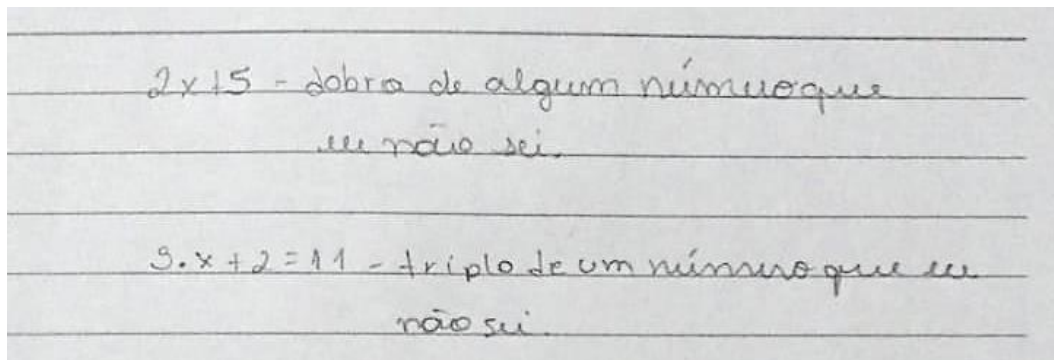 2x+5 - dobro de algum número que
eu não sei.
3.x+2=11 - triplo de um número que eu
não sei.